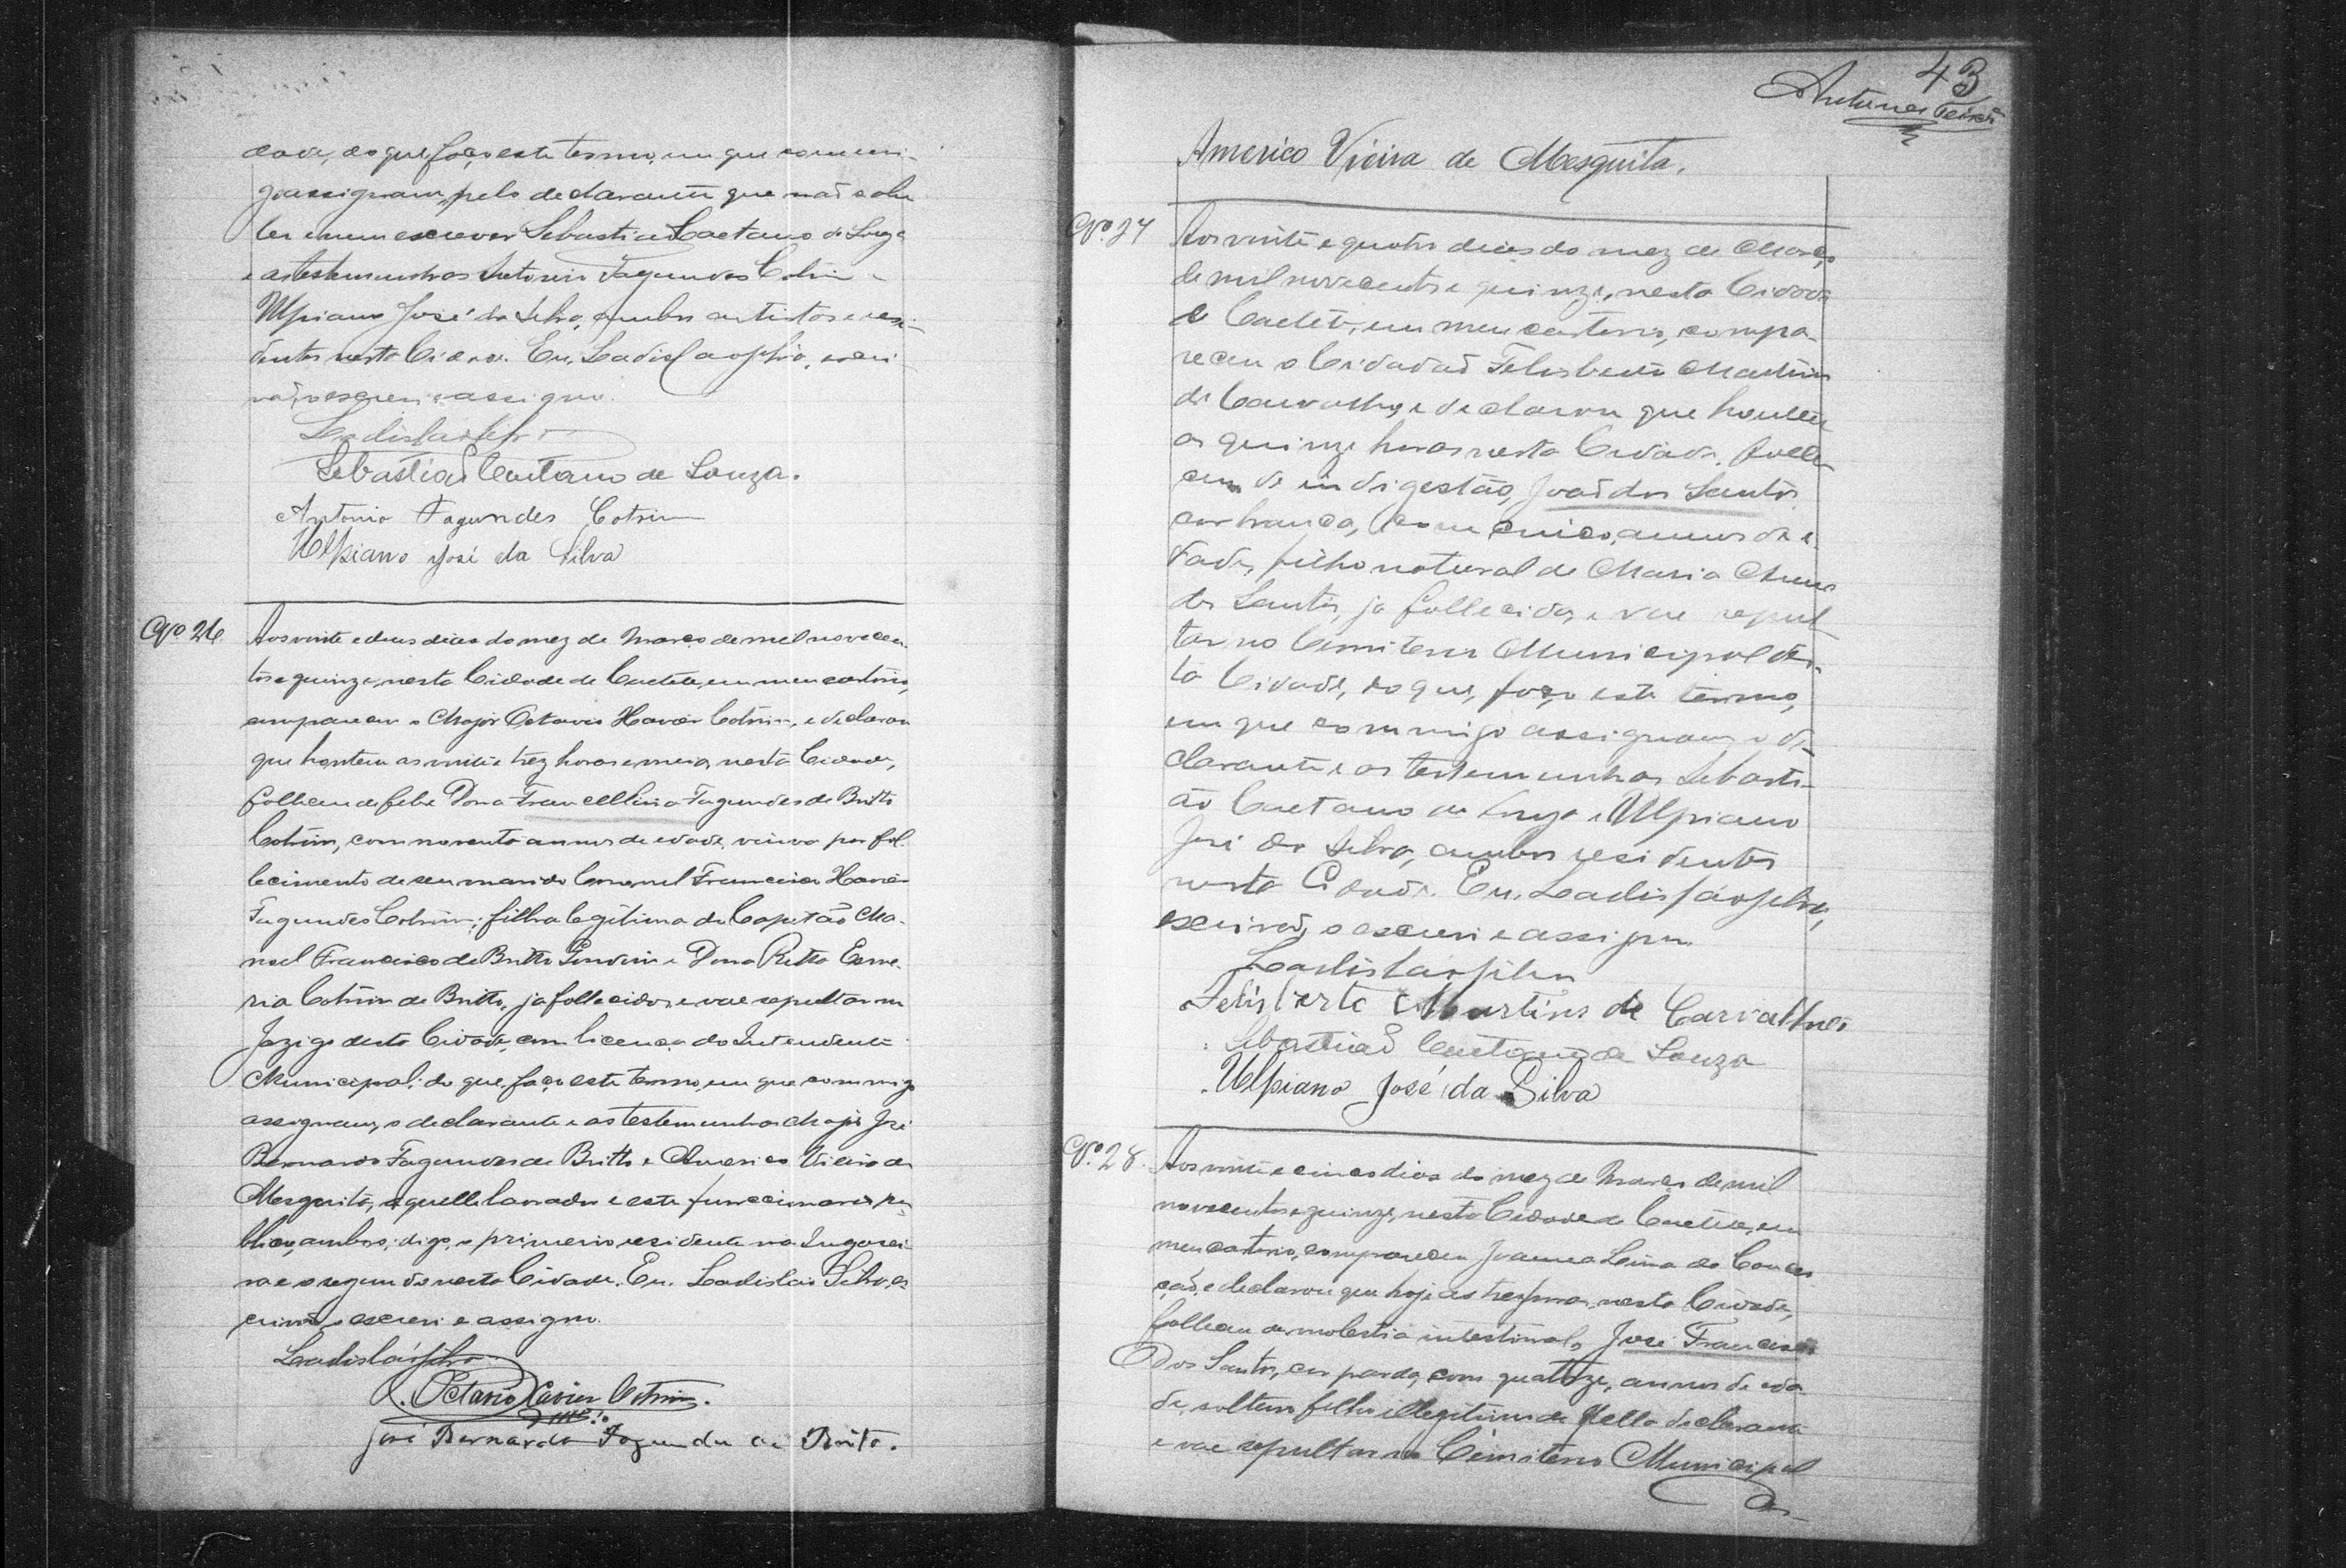 dade, do que faço este termo, em que commi-
go assignam, pelo declarante que não sabe
ler e nem escrever Sebastião Caetano de Souza
e as testemunhas Antonio Fagundes Cotrim e
Ulpiano José da Silva, ambos artistas e resi-
dentes nesta Cidade. Eu, Ladislao Silva, escri-
vão, o escrevi e assigno.
Ladislao Silva
Sebastião Caetano de Souza.
Antonio Fagundes Cotrim
Ulpiano José da Silva
Nº 26. Aos vinte e dous dias do mez de Março de mil novecen-
tos e quinze, nesta Cidade de Caeteté, em meu cartorio,
compareceu o Major Octavio Xavier Cotrim, e declarou
que hontem as vinte e trez horas e meia, nesta Cidade,
falleceu de febre Dona Francellina Fagundes de Britto
Cotrim, com noventa annos de edade, viuva por fal-
lecimento de seu marido Coronel Francisco Xavier
Fagundes Cotrim; filha legitima do Capitão Ma-
noel Francisco de Britto e Dona Ritta
ria Cotrim de Britto, ja fallecidos, e vae sepultar no
Jazigo desta Cidade, com licença do Intendente
Municipal; do que, faço este termo, em que commigo
assignam, o declarante e as testemunhas Major José
Bernardo Fagundes de Britto e Americo Vieira de
Mesquita, aquelle lavrador e este funccionario pu-
blico, ambos, digo, o primeiro residente na
ra e o segundo nesta Cidade. Eu, Ladislao Silva, es-
crivão, o escrevi e assigno.
Ladislao Silva
Octavio Xavier Cotrim.
José Bernardo Fagundes de Brito.
43
Antunes Teixeira
Americo Vieira de Mesquita.
Nº 27 Aos vinte e quatro dias do mez de Março
de mil novecentos e quinze, nesta Cidade
de Caeteté, em meu cartorio, compa-
receu o Cidadão Felisberto Martins
de Carvalho, e declarou que hontem
as quinze horas nesta Cidade, falle-
ceu de indigestão, João dos Santos,
cor branca, com cinco annos de e-
dade, filho natural de Maria
dos Santos, ja fallecida, e vae sepul-
tar no Cemiterio Municipal des-
ta Cidade, do que, faço este termo,
em que commigo assignam, o de-
clarante e as testemunhas Sebasti-
ão Caetano de Souza e Ulpiano
José da Silva, ambos residentes
nesta Cidade. Eu, Ladislao Silva,
escrivão, o escrevi e assigno.
Ladislao Silva
Felisberto Martins de Carvalho
Sebastião Caetano de Souza
Ulpiano José da Silva
Nº 28. Aos vinte e cinco dias do mez de Março de mil
novecentos e quinze, nesta Cidade de Caeteté, em
meu cartorio, compareceu Joanna da Concei-
ção, e declarou que hoje as tres horas, nesta Cidade,
falleceu de molestia intestinal, José Francisco
dos Santos, cor parda, com quatorze, annos de eda-
de, solteiro, filho illegitimo della declarante
e vae sepultar no Cemiterio Municipal
des-